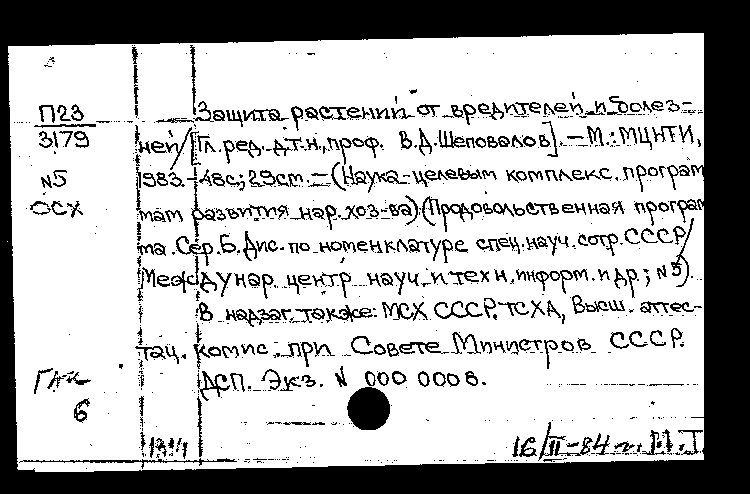 П23
3179
N5
ОСХ
Защита растений от вредителей и болез-
ней/[Гл. ред. д.т.н, проф. В.Д.Шеповалов]. — М.: МЦНТИ,
1983. - 48с; 29см. — (Наука - целевым комплекс. програм
мам развития нар. хоз-ва) (Продовольственная програм
ма. Сер. Б. Дис. по номенклатуре спец. науч. сотр. СССР/
Междунар. центр науч. и техн. информ. и др.; N5)
В надзаг. также: МСХ СССР. ТСХА, Высш. аттес-
тац. комис. при Совете Министров СССР.
ДСП. Экз. N 000 0006.
6
16/II-84 г.